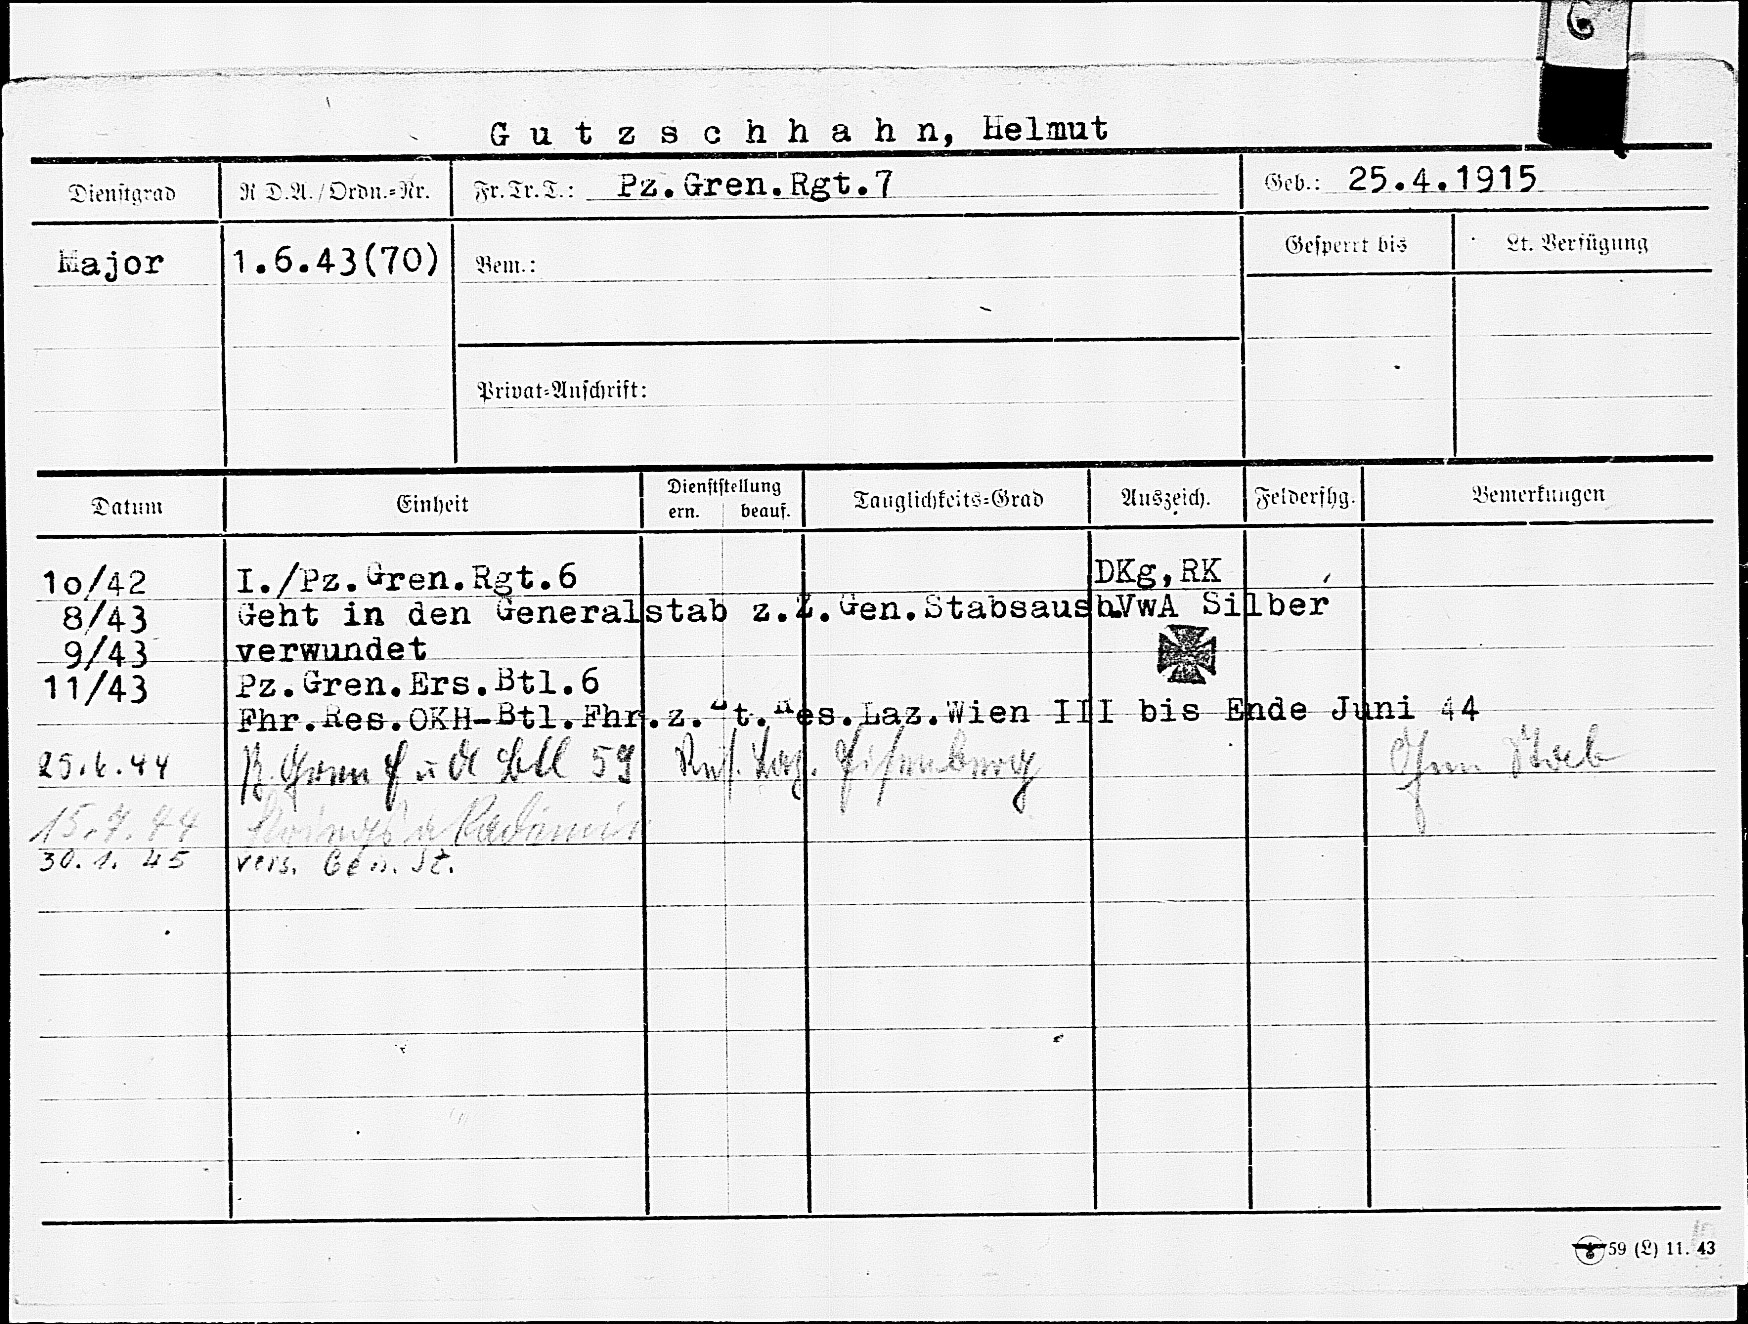 G
Gutzschhahn, Helmut
Dienstgrad R D.A./Ordn.=Nr. Fr.Tr.T.: Pz.Gren.Rgt.7 Geb.: 25.4.1915
Gesperrt bis Lt. Verfügung
Major 1.6.43(70) Bem.:
Privat=Anschrift:
Datum Einheit Dienststellung ern. beauf. Tauglichkeits=Grad Auszeich. Feldersthg. Bemerkungen
10/42 I./Pz.Gren.Rgt.6 DKg,RK
8/43 Geht in den Generalstab z.Z.Gen.Stabsausb. VwA Silber
9/43 verwundet
11/43 Pz.Gren.Ers.Btl.6
Fhr.Res.OKH-Btl.Fhr.z.Zt.Res.Laz.Wien III bis Ende Juni 44
25.6.44 Pz. Gren 59 Res. Laz. Eisenberg
15.7.44
30.1.45 vers. Gen.St.
59 (L) 11. 43